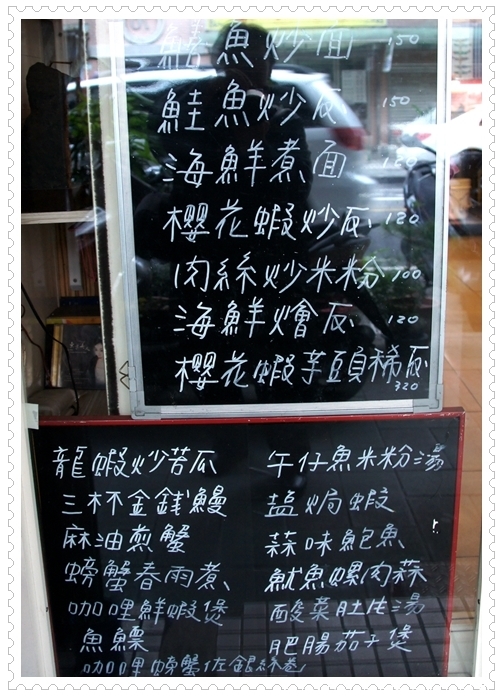 魚炒面 150
鮭魚炒反 150
海鮮煮面 120
櫻花蝦炒反 120
肉絲炒米粉 100
海鮮燴反 120
櫻花蝦芋頭稀反 320
龍蝦炒苦瓜
三杯金錢鰻
麻油煎蟹
螃蟹春雨煮
咖哩鮮蝦煲
魚鰾
咖哩螃蟹佐銀絲卷
午仔魚米粉湯
塩焗蝦
蒜味鮑魚
魷魚螺肉蒜
酸菜肚片湯
肥腸茄子煲